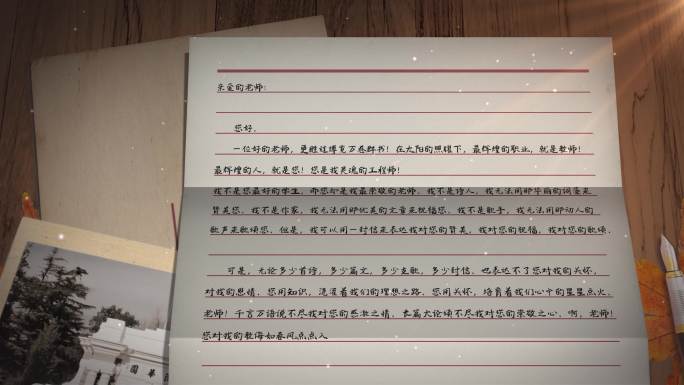 亲爱的老师:
您好,
一位好的老师,更胜过博览万卷群书!在太阳的照耀下,最辉煌的职业,就是教师!
最辉煌的人,就是您!您是我灵魂的工程师!
我不是您最好的学生,而您却是我最崇敬的老师,我不是诗人,我无法用那华丽的词语来
赞美您,我不是作家,我无法用那优美的文章来祝福您,我不是歌手,我无法用那动人的
歌声来歌颂您,但是,我可以用一封信来表达我对您的赞美,我对您的祝福,我对您的歌颂,
可是,无论多少首诗,多少篇文,多少支歌,多少封信,也表达不了您对我的关怀,
对我的恩情,您用知识,浇灌着我们的理想之路,您用关怀,培育着我们心中的星星点火,
老师!千言万语说不尽我对您的感激之情,长篇大论颂不尽我对您的崇敬之心,啊,老师!
您对我的教诲如春风点点入
園華